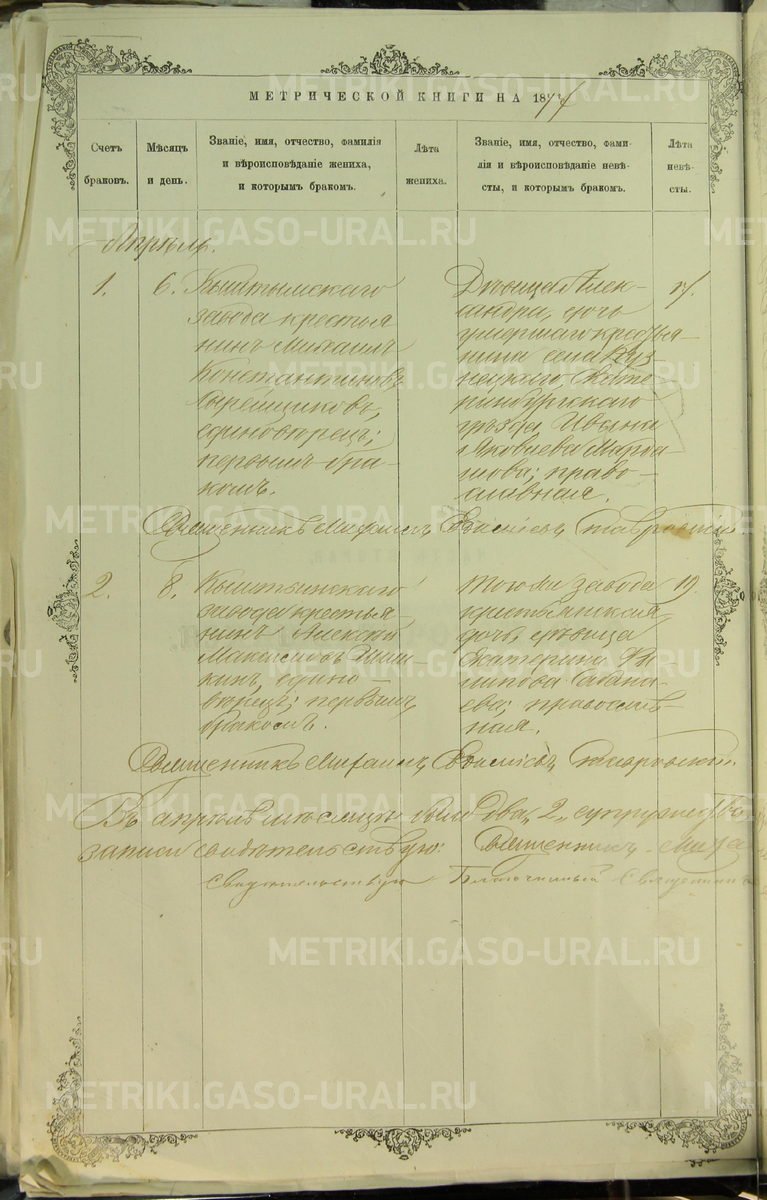 МЕТРИЧЕСКОЙ КНИГИ НА 1877
Счетъ браковъ.
Мѣсяцъ и день.
Званіе, имя, отчество, фамилія
и вѣроисповѣданіе жениха,
и которымъ бракомъ.
Лѣта жениха.
Званіе, имя, отчество, фами-
лія и вѣроисповѣданіе невѣ-
сты, и которымъ бракомъ.
Лѣта невѣ-сты.
Апрѣль.
1. 6.
Кыштымскаго
завода крестья
нинъ Михаилъ
Константиновъ
единовѣрецъ;
первымъ бра-
комъ.
Дѣвица Алек-
сандра, дочь
умершаго крестья-
нина села Куз
нецкаго, Екате
ринбургскаго
уѣзда, Ивана
Яковлева
право-
славная.
17.
Священникъ Михаилъ
2. 8.
Кыштымскаго
завода крестья-
нинъ Алексѣй
Максимовъ Шиш-
кинъ, едино-
вѣрецъ; первымъ
бракомъ.
Того же завода
крестьянская
дочь, дѣвица
Екатерина Фи
липпова
православ-
ная.
19.
Священникъ Михаилъ
Въ апрѣлѣ мѣсяцѣ было два, 2, супружества,
записи свидѣтельствую: Священникъ Миха
Свидѣтельствую Благочинный Священникъ
METRIKI.GASO-URAL.RU